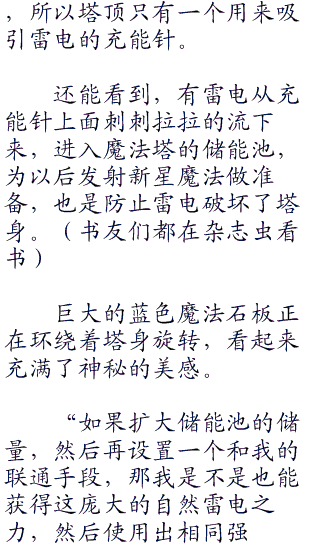 ，所以塔顶只有一个用来吸
引雷电的充能针。
还能看到，有雷电从充
能针上面刺刺拉拉的流下
来，进入魔法塔的储能池，
为以后发射新星魔法做准
备，也是防止雷电破坏了塔
身。（书友们都在杂志虫看
书）
巨大的蓝色魔法石板正
在环绕着塔身旋转，看起来
充满了神秘的美感。
“如果扩大储能池的储
量，然后再设置一个和我的
联通手段，那我是不是也能
获得这庞大的自然雷电之
力，然后使用出相同强